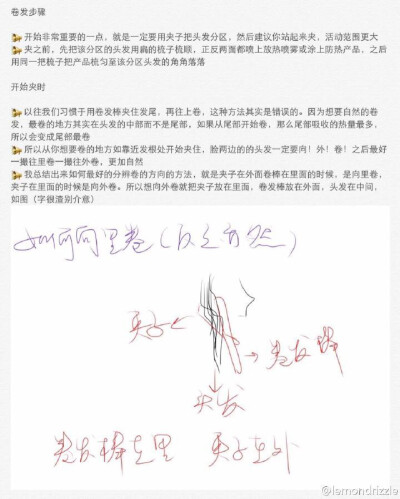 卷发步骤
开始非常重要的一点，就是一定要用夹子把头发分区，然后建议你站起来夹，活动范围更大
夹之前，先把该分区的头发用扁的梳子梳顺，正反两面都喷上放热喷雾或涂上防热产品，之后
用同一把梳子把产品梳匀至该分区头发的角角落落
开始夹时
以往我们习惯于用卷发棒夹住发尾，再往上卷，这种方法其实是错误的。因为想要自然的卷
发，最卷的地方其实在头发的中部而不是尾部，如果从尾部开始卷，那么尾部吸收的热量最多，
所以会变成尾部最卷
所以从你想要卷的地方如靠近发根处开始夹住，脸两边的的头发一定要向！外！卷！之后最好
一撮往里卷一撮往外卷，更加自然
我总结出来如何最好的分辨卷的方向的方法，就是夹子在外面卷棒在里面的时候，是向里卷，
夹子在里面的时候是向外卷。所以想向外卷就把夹子放在里面，卷发棒放在外面，头发在中间，
如图（字很渣别介意）
如何向里卷（反之亦然）
夹子
卷发棒
头发
卷发棒在里 夹子在外
@lemondrizzle